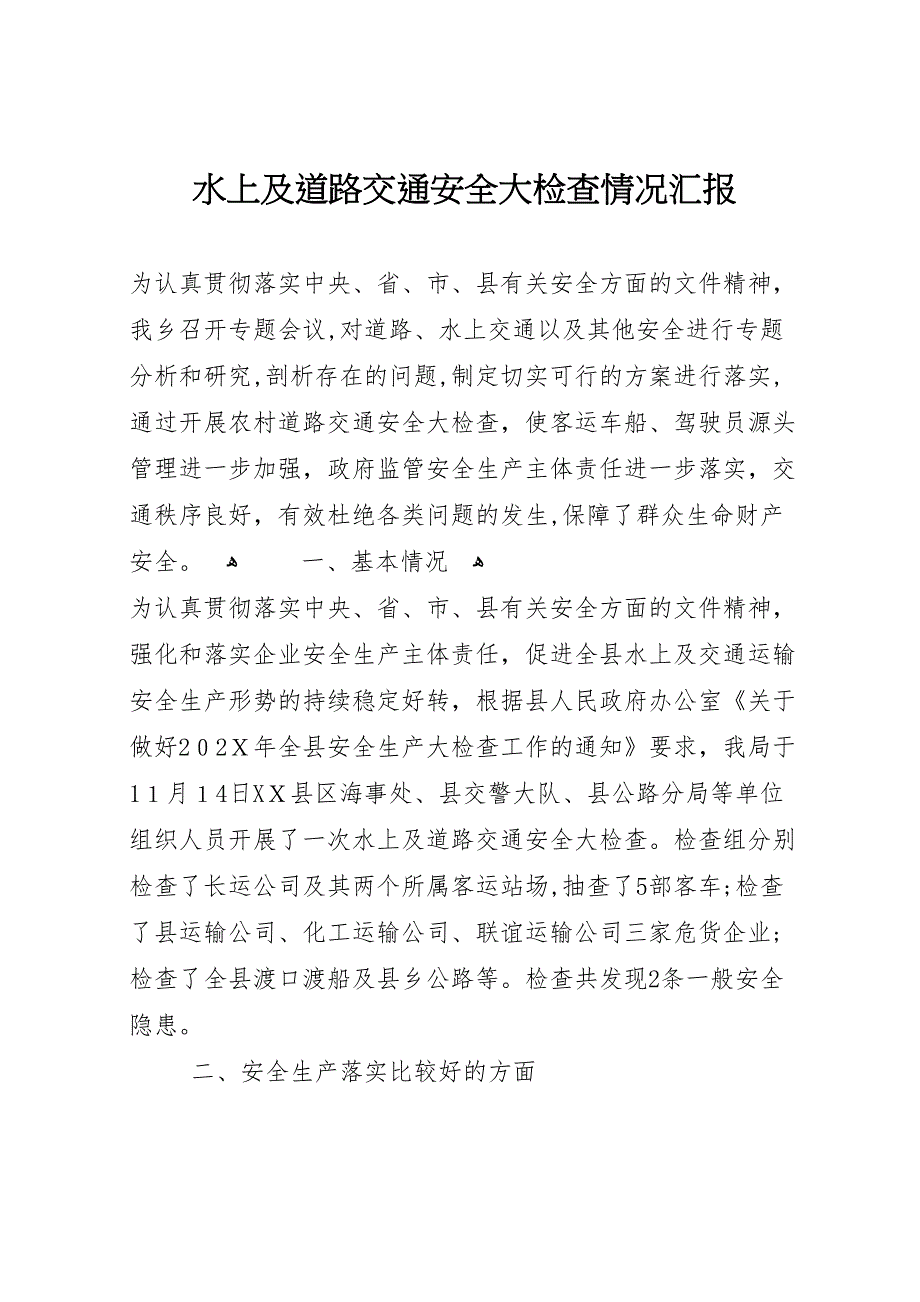 水上及道路交通安全大检查情况汇报
为认真贯彻落实中央、省、市、县有关安全方面的文件精神，
我乡召开专题会议,对道路、水上交通以及其他安全进行专题
分析和研究,剖析存在的问题,制定切实可行的方案进行落实,
通过开展农村道路交通安全大检查，使客运车船、驾驶员源头
管理进一步加强，政府监管安全生产主体责任进一步落实，交
通秩序良好，有效杜绝各类问题的发生,保障了群众生命财产
安全。 ﻫ 一、基本情况 ﻫ
为认真贯彻落实中央、省、市、县有关安全方面的文件精神，
强化和落实企业安全生产主体责任，促进全县水上及交通运输
安全生产形势的持续稳定好转，根据县人民政府办公室《关于
做好202Ⅹ年全县安全生产大检查工作的通知》要求，我局于
1１月１4日XⅩ县区海事处、县交警大队、县公路分局等单位
组织人员开展了一次水上及道路交通安全大检查。检查组分别
检查了长运公司及其两个所属客运站场,抽查了5部客车;检查
了县运输公司、化工运输公司、联谊运输公司三家危货企业;
检查了全县渡口渡船及县乡公路等。检查共发现2条一般安全
隐患。
二、安全生产落实比较好的方面